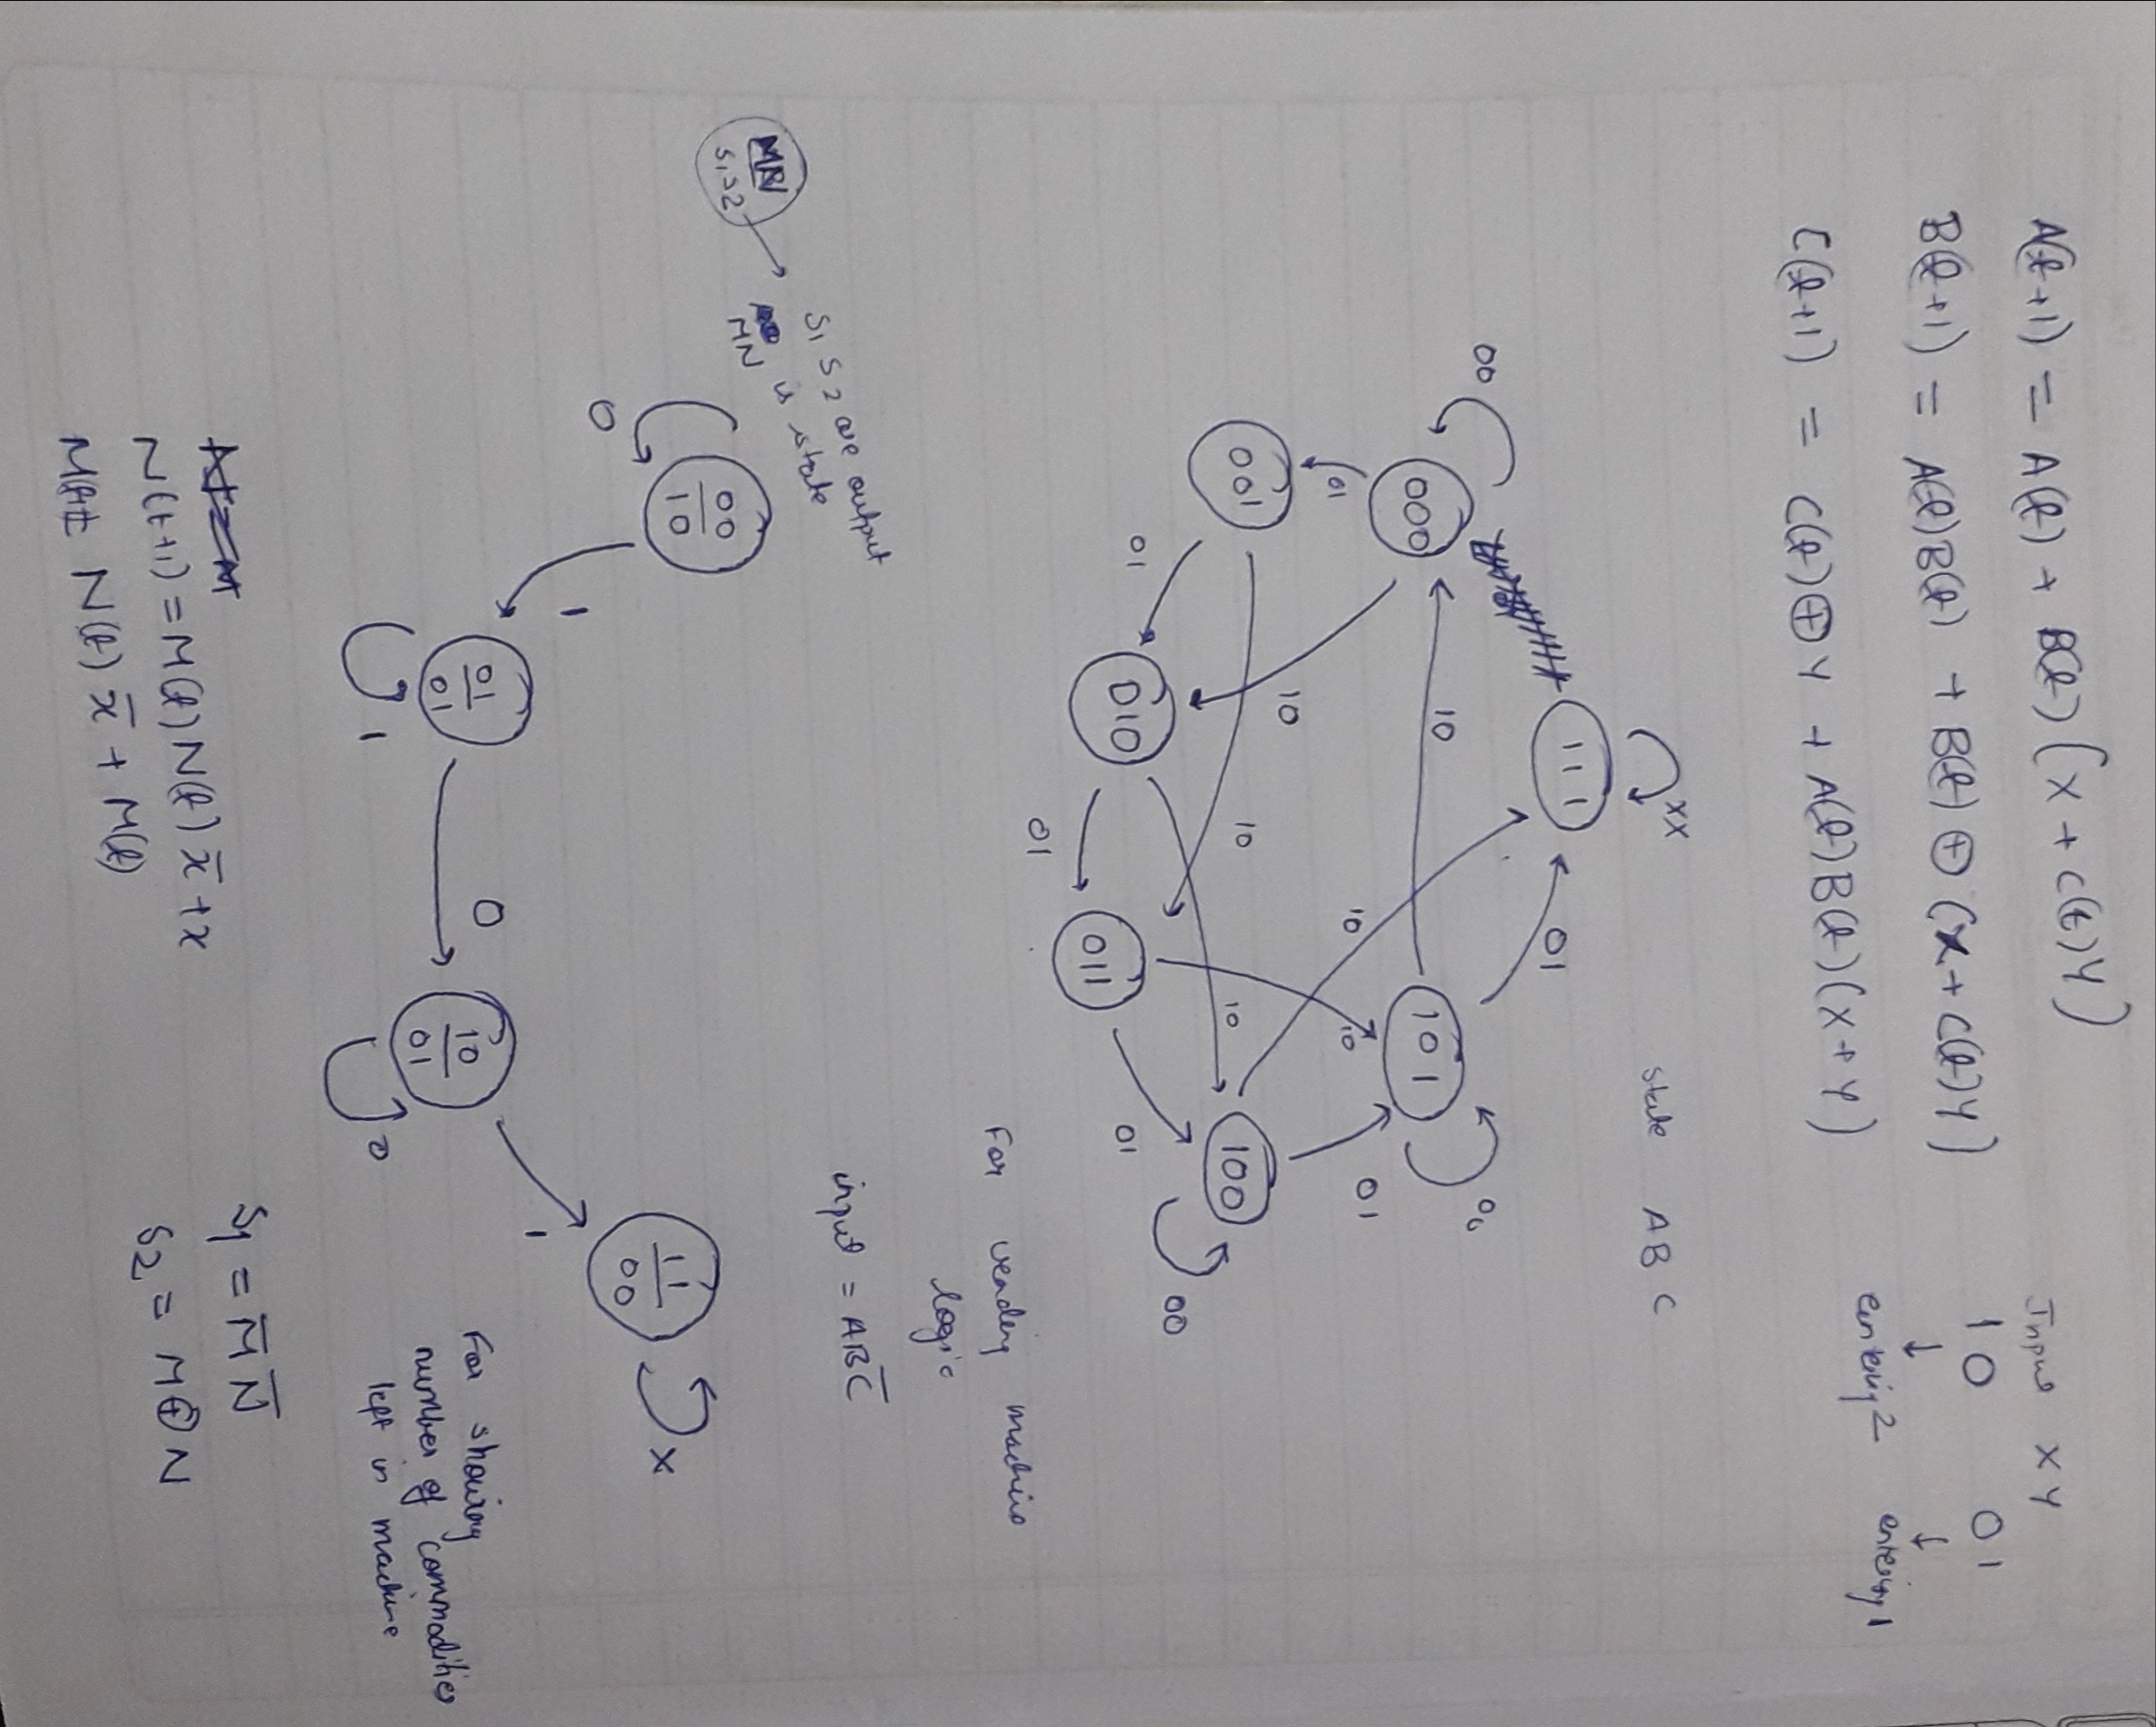 A(t+1) = A(t) + B(t) (X + C(t)Y)
B(t+1) = A(t)B(t) + B(t) ⊕ (X + C(t)Y)
C(t+1) = C(t)⊕Y + A(t)B(t)(X+Y)
Input X Y
10 01
↓ ↓
entering 2 entering 1
state A B C
XX
111
01
00
00
10
000
101
01
10
10
01
10
001
10
10
100
00
01
010
011
01
01
For vending machine
logic
input = ABC̅
S1 S2 are output
MN is state
MN
S1S2
00
10
0
1
11
00
X
01
01
0
10
01
1
1
0
For showing
number of commodities
left in machine
N(t+1) = M(t)N(t)x̅ + x
N(t)x̅ + M(t)
S1 = M̅ N̅
S2 = M⊕N